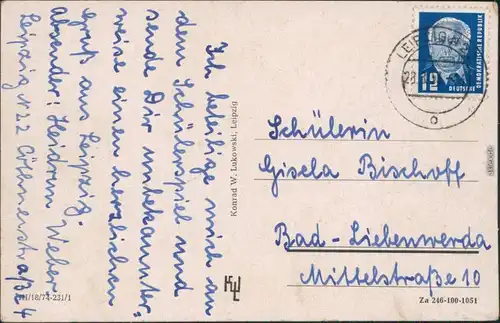 Ich beteilige mich an
dem Schülerspiel und
sende Dir unbekannter-
weise einen herzlichen
Gruß aus Leipzig.
Absender: Heidrun Weber
Leipzig N 22 Cöthnerstraße 4
III/18/74-231/1
Konrad W. Lukowski, Leipzig
KWL
LEIPZIG
12
DEUTSCHE
DEMOKRATISCHE REPUBLIK
Schülerin
Gisela Bischoff
Bad-Liebenwerda
Mittelstraße 10
Za 246-100-1051